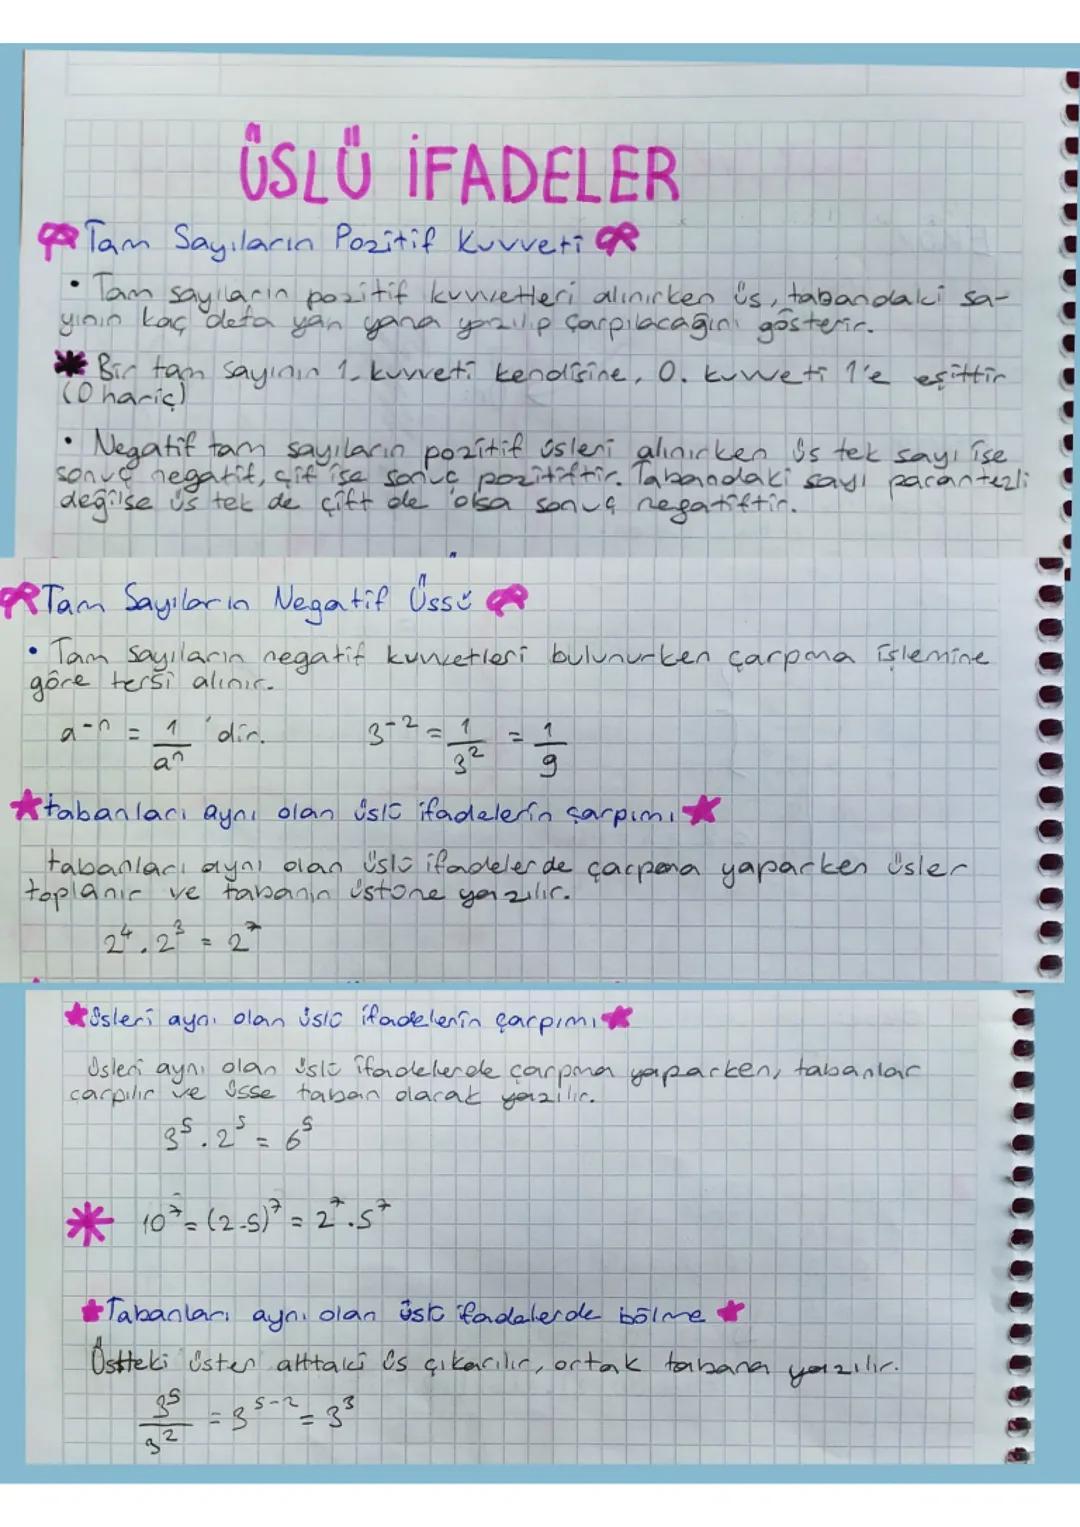 ÜSLÜ İFADELER
Tam Sayıların Pozitif Kuvveti
• Tam sayıların pozitif kuvvetleri alınırken üs, tabandaki sa-
yının kaç defa yan yana yazılıp çarpılacağını gösterir.
* Bir tam sayının 1. kuvveti kendisine, 0. kuvveti 1'e eşittir
(0 hariç)
• Negatif tam sayıların pozitif üsleri alınırken üs tek sayı ise
sonuç negatif, çift ise sonuç pozitiftir. Tabandaki sayı parantezli
değilse üs tek de çift de olsa sonuç negatiftir.
Tam Sayıların Negatif Üssü
• Tam sayıların negatif kuvvetleri bulunurken çarpma işlemine
göre tersi alınır.
a⁻ⁿ = 1/aⁿ 'dir. 3⁻² = 1/3² = 1/9
★ tabanları aynı olan üslü ifadelerin çarpımı ★
tabanları aynı olan üslü ifadelerde çarpma yaparken üsler
toplanır ve tabanın üstüne yazılır.
2⁴ . 2³ = 2⁷
★ üsleri aynı olan üslü ifadelerin çarpımı ★
Üsleri aynı olan üslü ifadelerde çarpma yaparken, tabanlar
çarpılır ve üsse taban olarak yazılır.
3⁵ . 2⁵ = 6⁵
* 10⁷ = (2.5)⁷ = 2⁷ . 5⁷
★ Tabanları aynı olan üslü ifadelerde bölme ★
Üstteki üsten alttaki üs çıkarılır, ortak tabana yazılır.
3⁵/3² = 3⁵⁻² = 3³